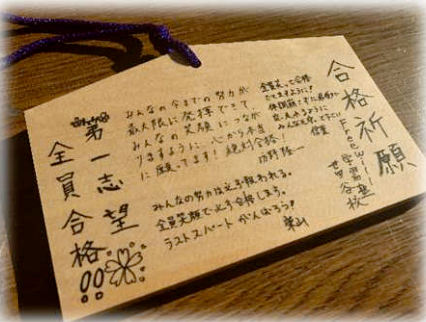 合格祈願
Freewill学習塾
世田谷校
全員笑って合格
できますように!
みんなの今までの努力が
最大限に発揮できて、
みんなの笑顔につなが
りますように…心から本当
に願ってます!絶対合格!
みんなの努力は必ず報われる。
全員笑顔で必ず合格しよう。
ラストスパートがんばろう!
第一志望
全員合格!!